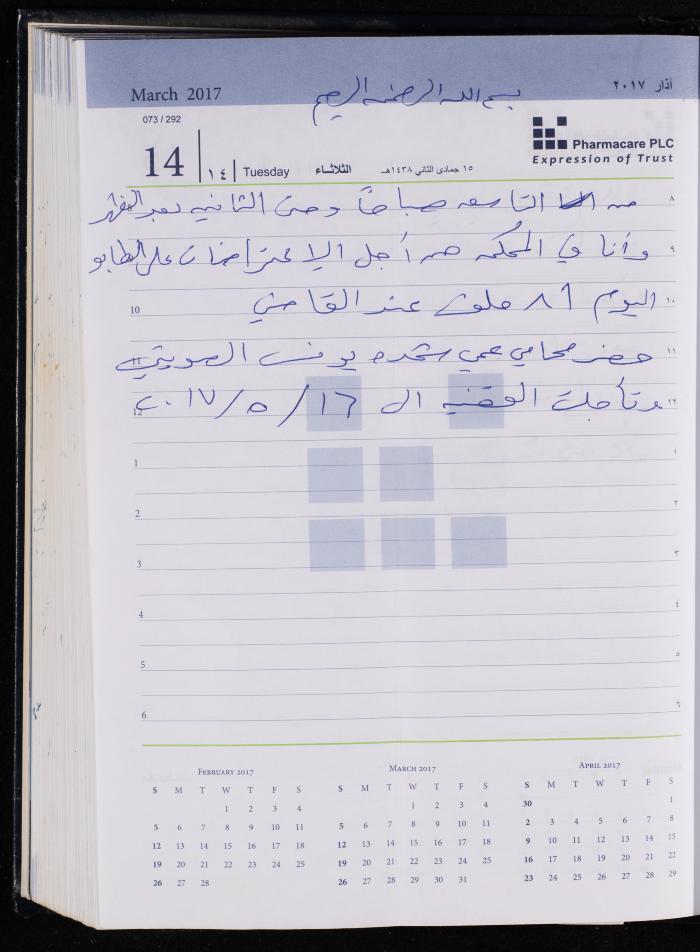 March 2017
آذار ٢٠١٧
بسم الله الرحمن الرحيم
073 / 292
14
١٤
Tuesday
الثلاثاء
١٥ جمادى الثاني ١٤٣٨هـ
Pharmacare PLC
Expression of Trust
من التاسعه صباحاً وحتى الثانيه بعد الظهر ٨
وأنا في المحكمه من أجل الإعتراضات على الطابو ٩
10 اليوم ٨٩ ملف عند القاضي ١٠
حضر محامي عمي يوسف ١١
12 وتأجلت القضيه الى ١٦/٥/٢٠١٧ ١٢
1 ١
2 ٢
3 ٣
4 ٤
5 ٥
6 ٦
February 2017
S M T W T F S
1 2 3 4
5 6 7 8 9 10 11
12 13 14 15 16 17 18
19 20 21 22 23 24 25
26 27 28
March 2017
S M T W T F S
1 2 3 4
5 6 7 8 9 10 11
12 13 14 15 16 17 18
19 20 21 22 23 24 25
26 27 28 29 30 31
April 2017
S M T W T F S
30 1
2 3 4 5 6 7 8
9 10 11 12 13 14 15
16 17 18 19 20 21 22
23 24 25 26 27 28 29